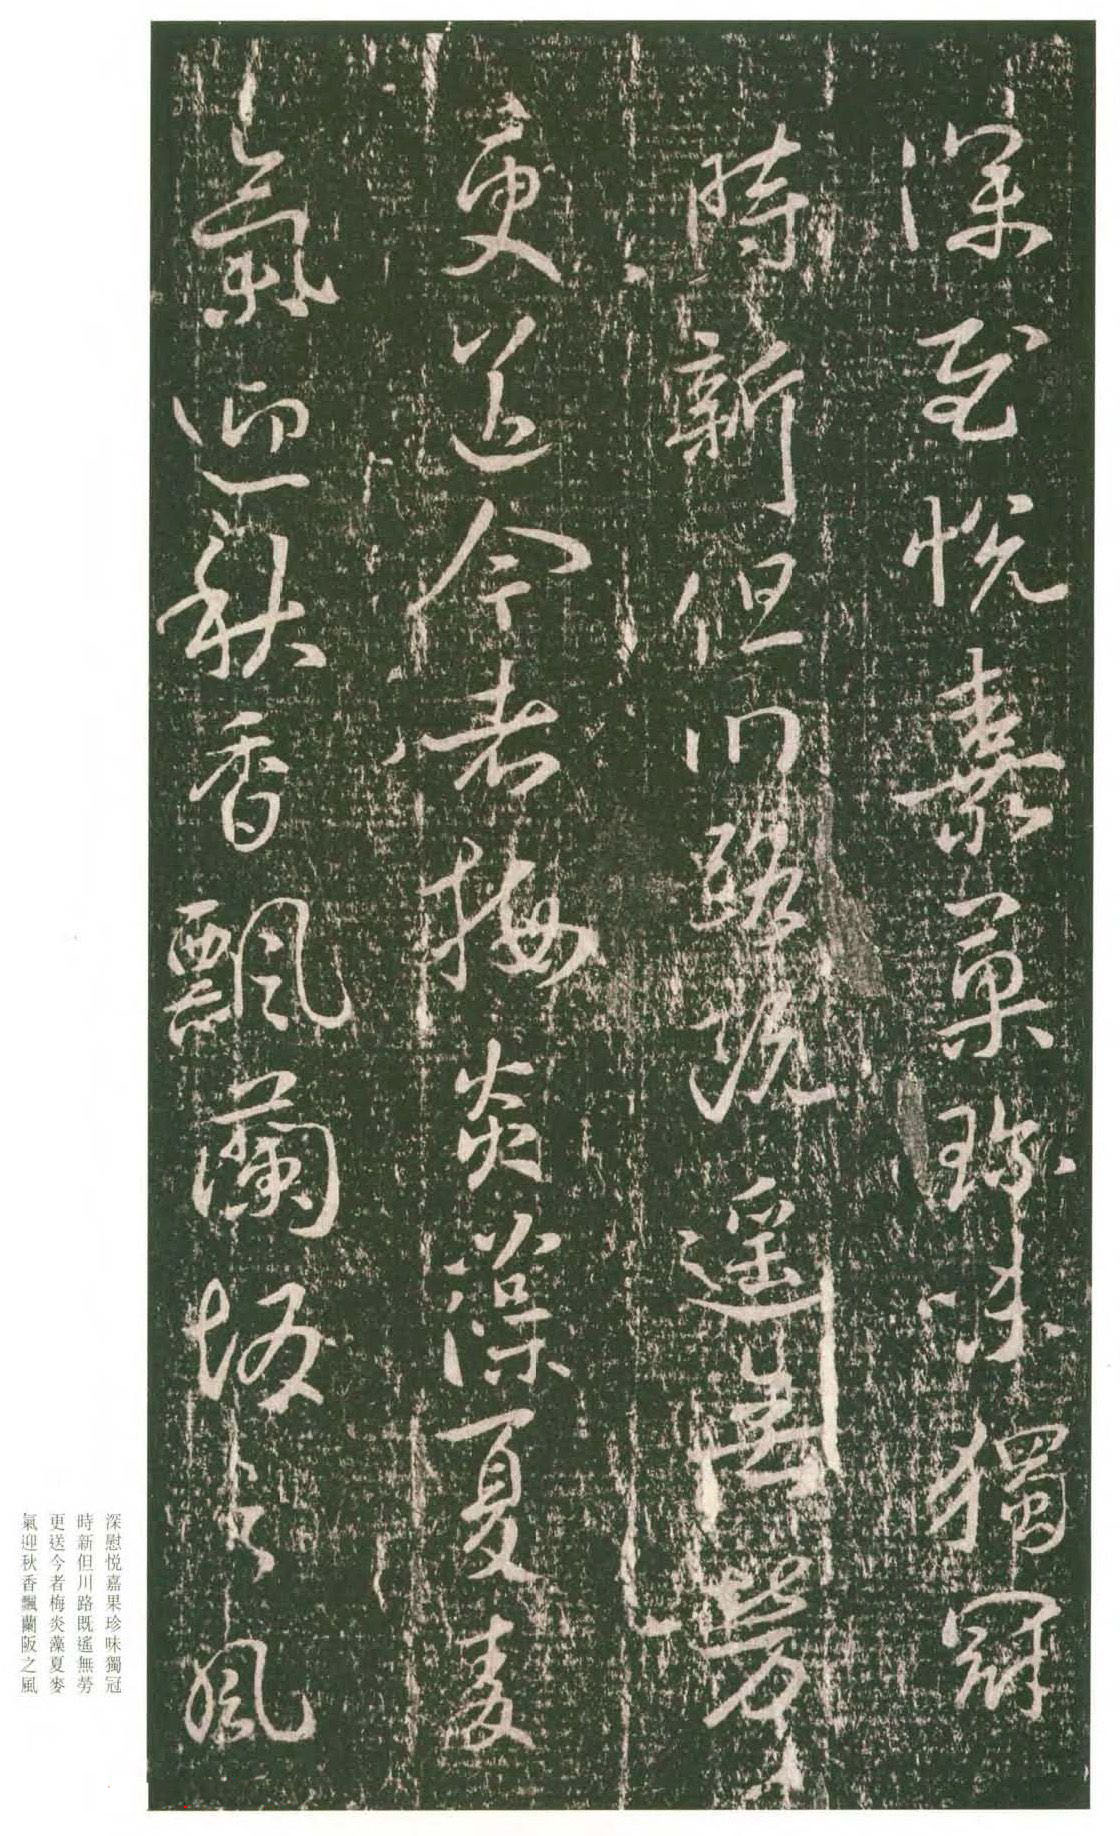 深至悦嘉菓珍味獨冠
時新但川路既遙無勞
更送今者梅炎藻夏麥
氣迎秋香飄蘭坂之風
深慰悦嘉果珍味獨冠
時新但川路既遙無勞
更送今者梅炎藻夏麥
氣迎秋香飄蘭阪之風